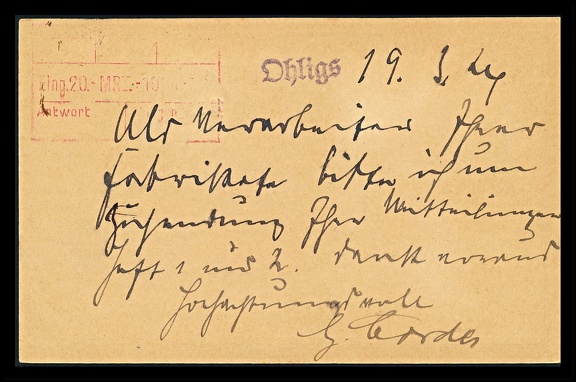 Ohligs 19. 3. 24
Eing. 20. MRZ. 19
Antwort
Als Verarbeiter Ihrer
Fabrikate bitte ich um
Zusendung Ihrer Mitteilungen
Heft 1 und 2. Dank voraus
Hochachtungsvoll
Cordes